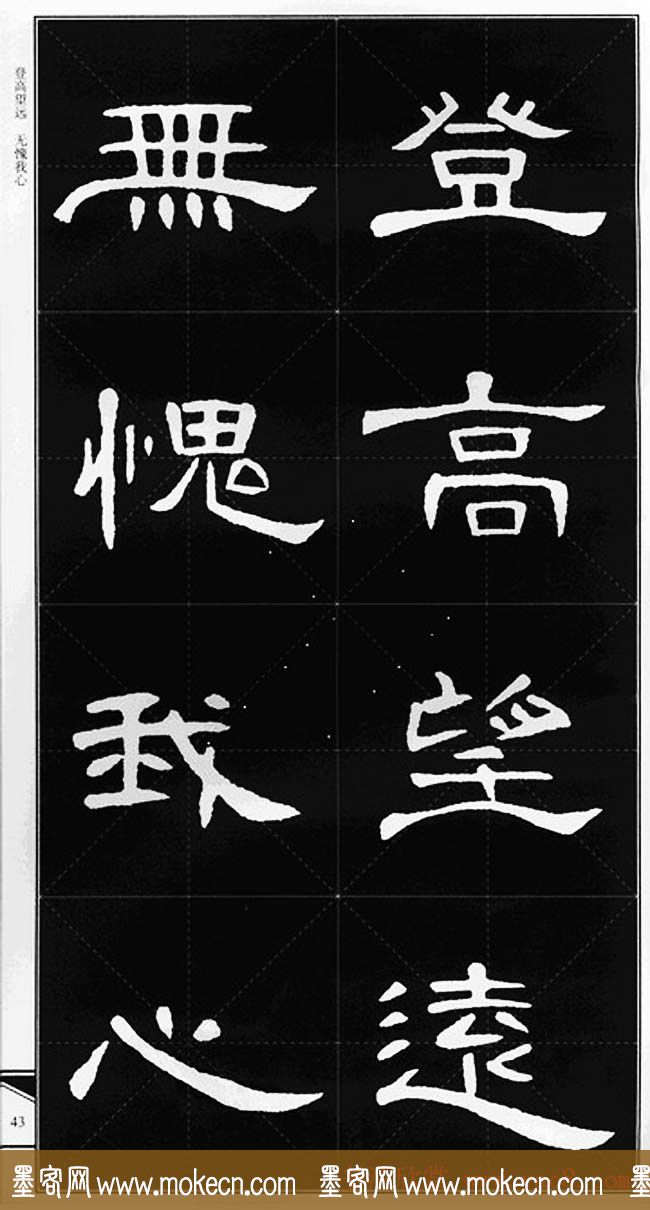 登高望遠
無愧我心
登高望远 无愧我心
43
墨客网 www.mokecn.com 墨客网 www.mokecn.com
欣赏